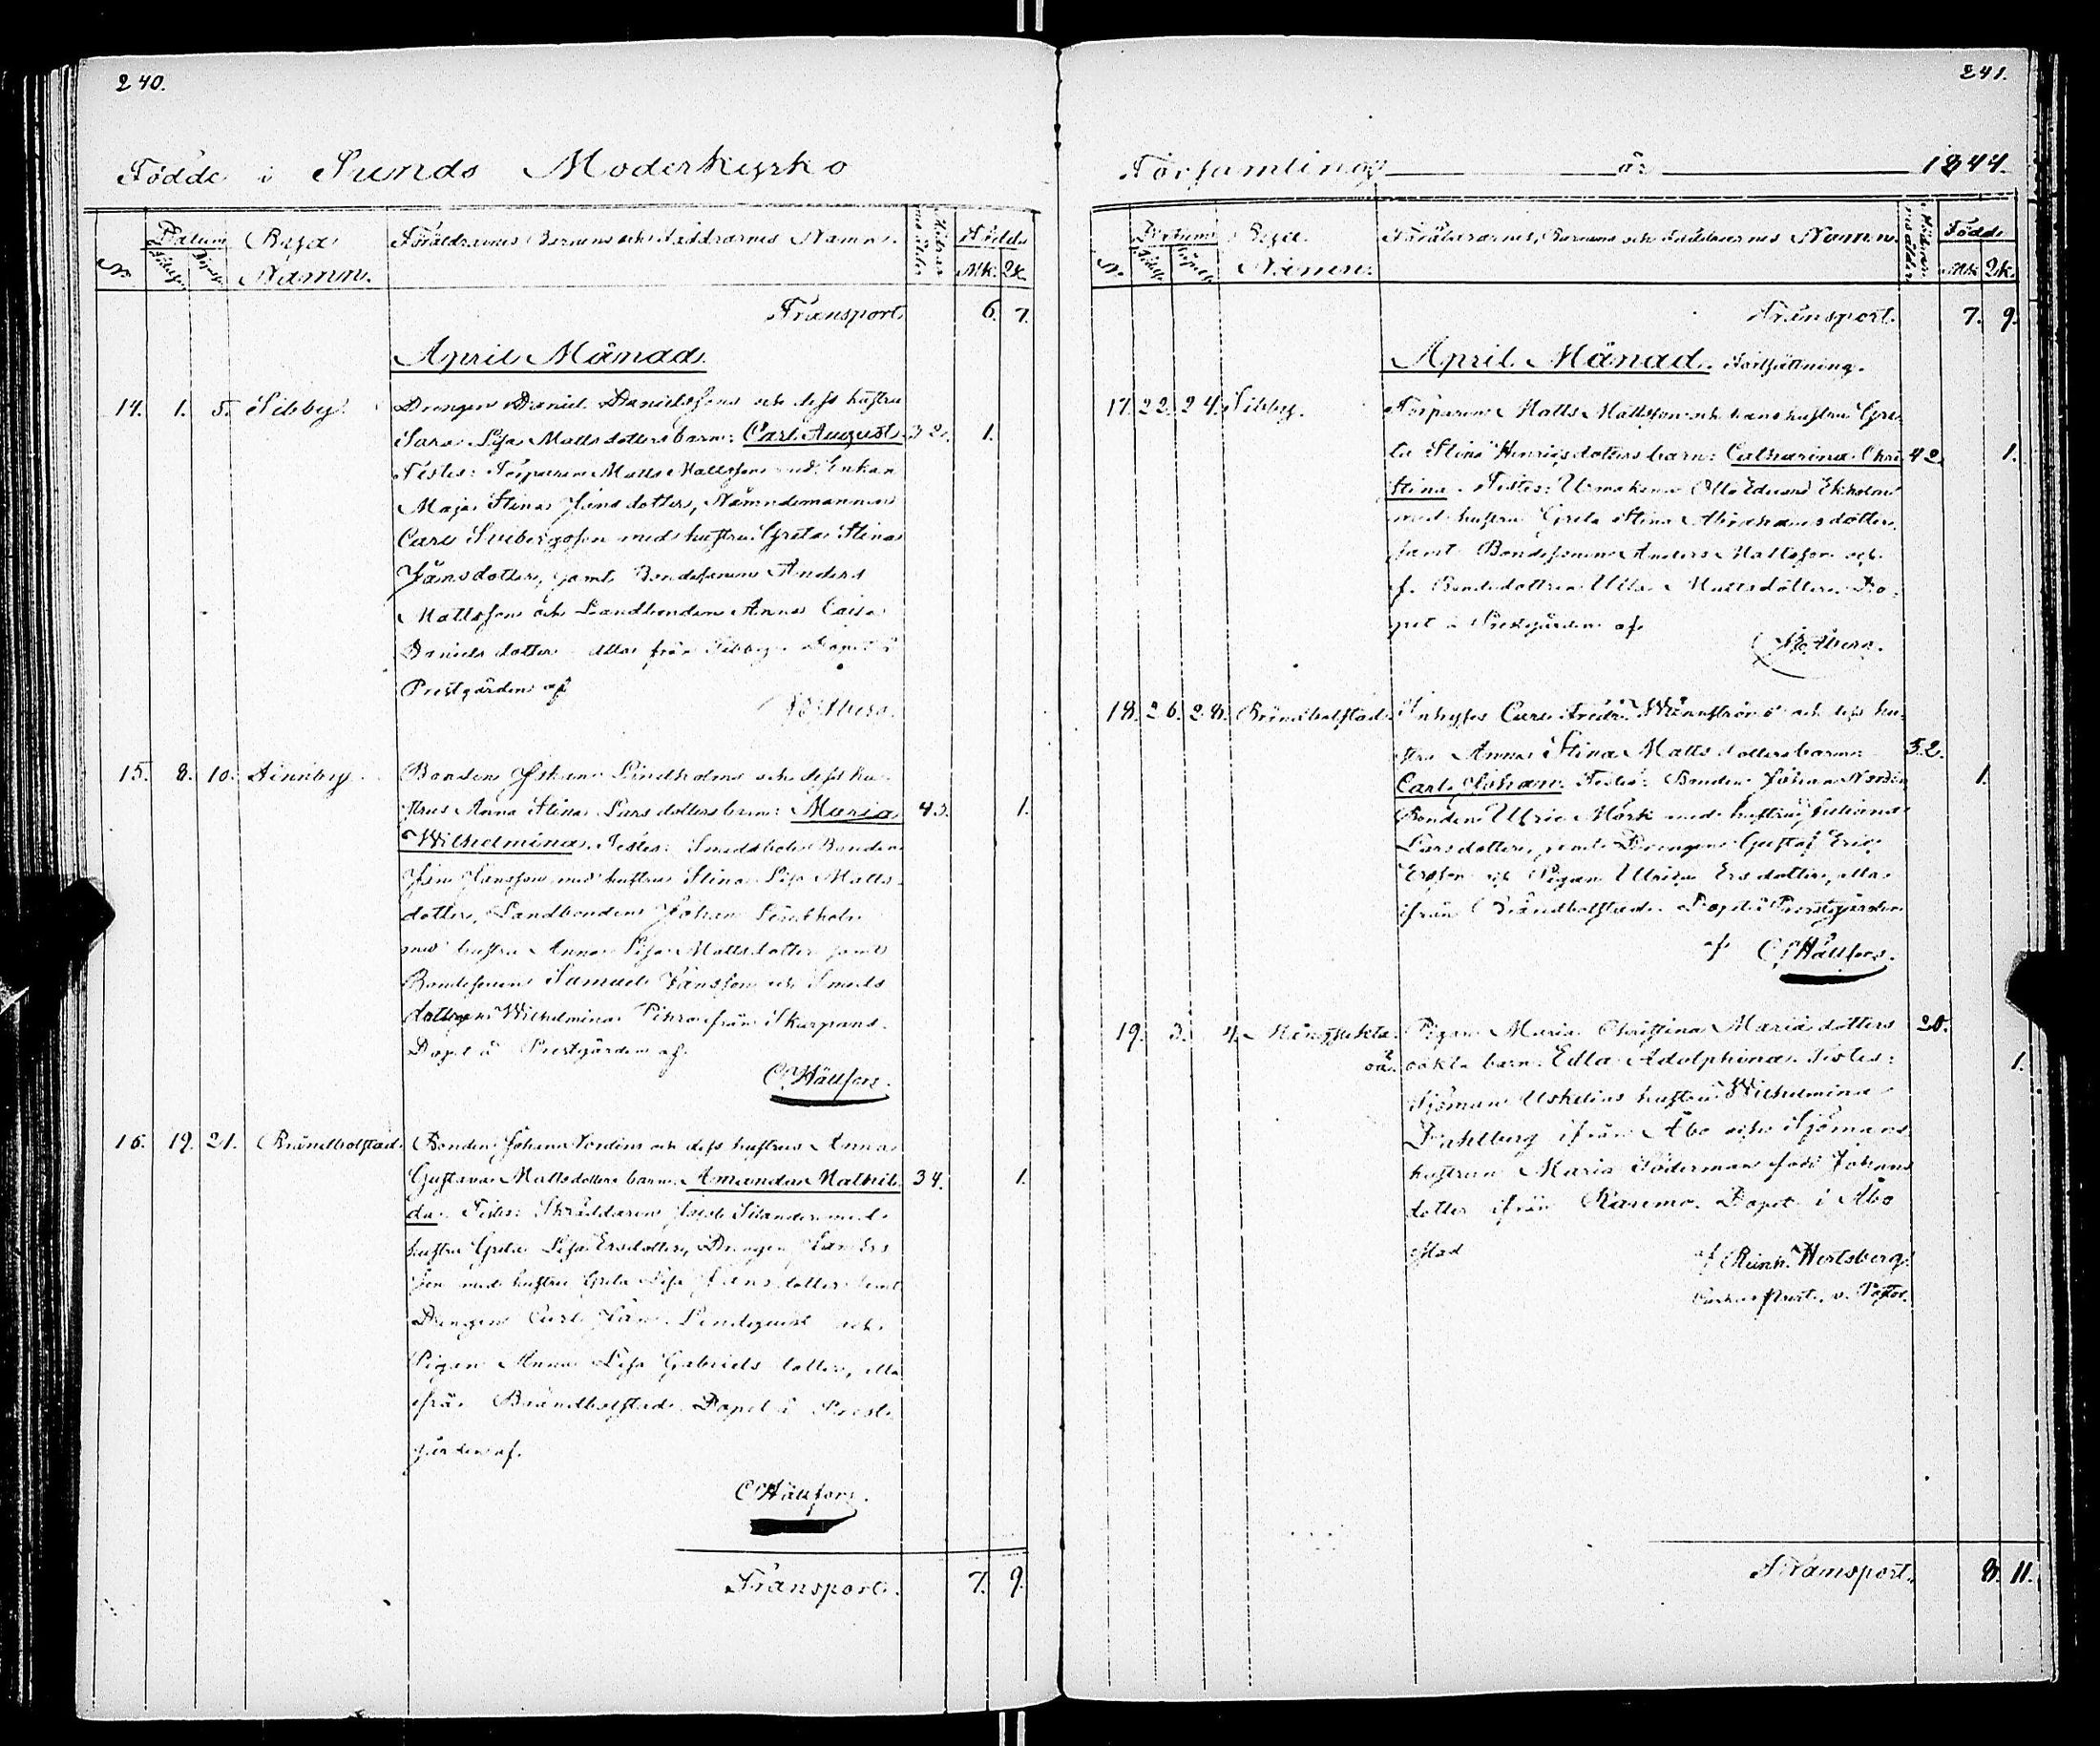 240.
Födde i Sunds Moderkyrko
No
Datum
Födelse
Döpelse
Byja
Namn.
Föräldrarnes, Barnens och Faddrarnes Namn.
Modrarnas ålder
Födde
Mk. Qk.
Transport. 6. 7.
April Månad.
14. 1. 5. Sibby. Drengen Daniel Danielssons och dess hustru
Sara Lisa Mattsdotters barn: Carl August. 32. 1.
Testes: Torparen Matts Mattsson med Enkan
Maja Stina Jansdotter, Nämndemannen
Carl Svebergsson med hustru Greta Stina
Jansdotter, samt Bondesonen Anders
Mattsson och Landbonden Anna Caisa
Danielsdotter alla från Sibby. Döpet i
Prestgården af
15. 8. 10. Finnby. Bonden Johan Lindholms och dess hu-
strus Anna Stina Larsdotters barn: Maria 43. 1.
Wilhelmina. Testes: Smedsbole Bonden
Jan Jansson med hustru Stina Lisa Matts-
dotter, Landbonden Johan Lindholm
med hustru Anna Lisa Mattsdotter samt
Bondesonen Samuel Jansson och Smeds
dottern Wilhelmina Pihra ifrån Skarpans.
Döpet i Prestgården af.
C. Hällfors.
16. 19. 21. Brändbolstad. Bonden Johan Nordins och dess hustrus Anna
Gustava Mattsdotters barn: Amanda Mathil- 34. 1.
da. Testes: Skräddaren Silander med
hustru Greta Lisa Ersdotter, Drengen Jan Ers
son med hustru Greta Lisa Jansdotter samt
Drengen Carl Jan Lindquist och
Pigan Anna Lisa Gabrielsdotter, alla
ifrån Brändbolstad. Döpet i Prest-
gården af.
C Hällfors.
Transport. 7. 9.
241.
Församling år 1844.
No
Datum
Födelse
Döpelse
Byja
Namn.
Föräldrarnes, Barnens och Faddrarnes Namn.
Modrarnas ålder
Födde
Mk. Qk.
Transport. 7. 9.
April Månad. Fortsättning.
17. 22. 24. Sibby. Torparen Matts Mattsson och hans hustru Gre-
ta Stina Henricsdotters barn: Catharina Chri 42. 1.
stina. Testes: Otto Eduard Ekholm
med hustru Greta Stina Abrahamsdotter,
samt Bondesonen Anders Mattsson och
f. Bondedottren Ulla Mattsdotter. Dö-
pet i Prestgården af
18. 26. 28. Brändbolstad. Inhyses Carl Fredr. Wännström och dess hu-
stru Anna Stina Mattsdotters barn: 32.
Carl Johan. Testes: Bonden Johan Nordin, 1.
Bonden Ulric Mörk med hustru Juliana
Larsdotter, samt Drengen Gustaf Eric
Ersson och Pigan Ulrica Ersdotter, alla
ifrån Brändbolstad. Döpet i Prestgården
af C Hällfors.
19. 3. 4. Pigan Maria Christina Mariædotters 20.
oä. oäkta barn. Edla Adolphina. Testes: 1.
Sjöman Uskelins hustru Wilhelmina
Dahlberg ifrån Åbo och Sjömans
hustrun Maria Söderman född Johans
dotter ifrån Karemo. Döpet i Åbo
stad af Reinh. Hertsberg.
v. Pastor.
Transport. 8. 11.